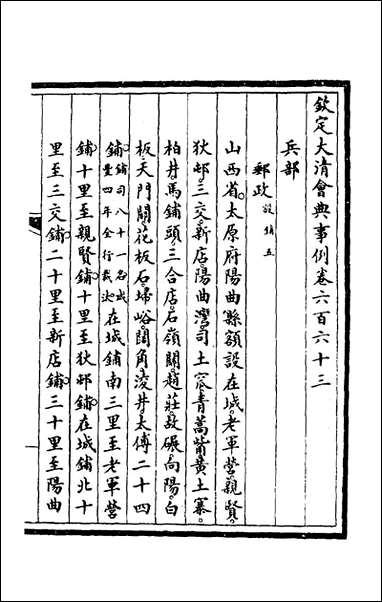 欽定大清會典事例卷六百六十三
兵部
郵政設鋪五
山西省。太原府陽曲縣額設在城。老軍營。親賢。
狄邨。三交。新店。陽曲灣。司土窊。青蒿觜。黄土寨。
柏井。馬鋪頭。三合店。石嶺關。趙莊。故碾。向陽。白
板。天門關。花板石。埽峪。閻角。淩井。太傅二十四
鋪。鋪司八十一名咸豐四年全行裁汰在城鋪南三里至老軍營
鋪。十里至親賢鋪。十里至狄邨鋪。在城鋪北十
里至三交鋪。二十里至新店鋪。三十里至陽曲